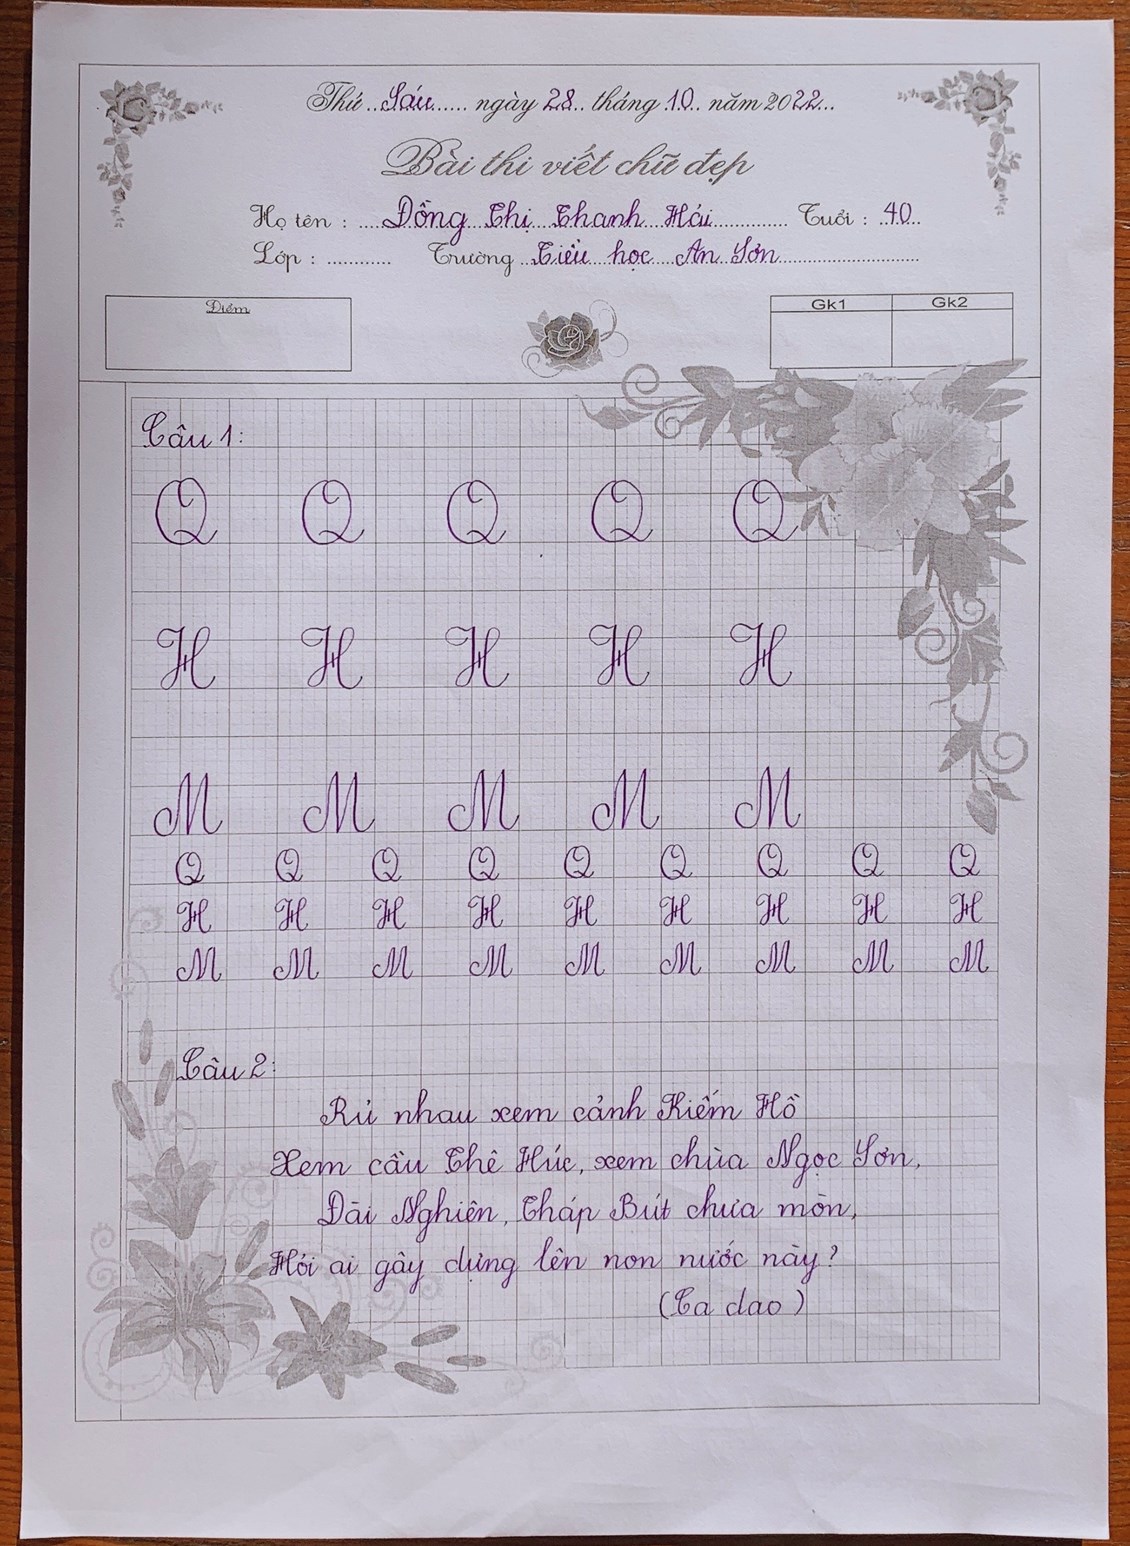 Thứ Sáu ngày 28 tháng 10 năm 2022
Bài thi viết chữ đẹp
Họ tên : Đồng Thị Thanh Hải Tuổi : 40
Lớp : Trường Tiểu học An Sơn
Điểm
Gk1 Gk2
Câu 1:
Q Q Q Q Q
H H H H H
M M M M M
Q Q Q Q Q Q Q Q Q
H H H H H H H H H
M M M M M M M M M
Câu 2:
Rủ nhau xem cảnh Kiếm Hồ
Xem cầu Thê Húc, xem chùa Ngọc Sơn,
Đài Nghiên, Tháp Bút chưa mòn,
Hỏi ai gây dựng lên non nước này?
(Ca dao)